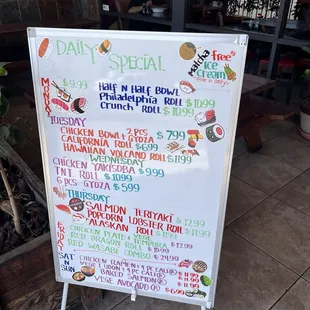 DAILY SPECIAL
Matcha free
ice
cream
MONDAY
$9.99
Half N Half BOWL
Philadelphia ROLL $10.99
Crunch ROLL $10.99
TUESDAY
CHICKEN BOWL + 2 PCS $7.99
CALIFORNIA ROLL $6.99
HAWAIIAN VOLCANO ROLL $11.99
WEDNESDAY
CHICKEN YAKISOBA $9.99
TNT ROLL $10.99
6 PCS GYOZA $5.99
THURSDAY
SALMON TERIYAKI
POPCORN LOBSTER ROLL $12.99
ALASKAN ROLL $11.99
FRIDAY
CHICKEN PLATE & VEGE TEMPURA
RED DRAGON ROLL $12.99
RED WASABI COMBO
SAT
N
SUN
CHICKEN RAMEN & 4 PC CALI
VEGE UDON & 4 PC CALI
BAKED SALMON
VEGE AVOCADO $6.99